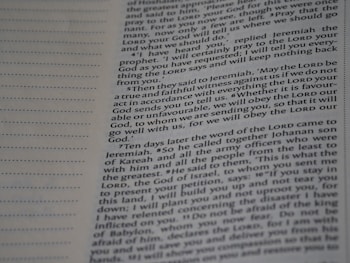 the greatest approached Jeremiah
and said to him,
pray to the LORD your God for
nant. For as you now see, though we were once
many, now only a few are left. ³Pray that the
LORD your God will tell us where we should go
and what we should do.'
⁴'I have heard you,' replied Jeremiah the
prophet. 'I will certainly pray to the LORD your
God as you have requested; I will tell you every-
thing the LORD says and will keep nothing back
from you.'
⁵Then they said to Jeremiah, 'May the LORD be
a true and faithful witness against us if we do not
act in accordance with everything the LORD your
God sends you to tell us. ⁶Whether it is favour-
able or unfavourable, we will obey the LORD our
God, to whom we are sending you, so that it will
go well with us, for we will obey the LORD our
God.'
⁷Ten days later the word of the LORD came to
Jeremiah. ⁸So he called together Johanan son
of Kareah and all the army officers who were
with him and all the people from the least to
the greatest. ⁹He said to them, 'This is what the
LORD, the God of Israel, to whom you sent me
to present your petition, says: ¹⁰"If you stay in
this land, I will build you up and not tear you
down; I will plant you and not uproot you, for
I have relented concerning the disaster I have
inflicted on you. ¹¹Do not be afraid of the king
of Babylon, whom you now fear. Do not be
afraid of him, declares the LORD, for I am with
you and will save you and deliver you from his
hands. ¹²I will show you compassion so that he